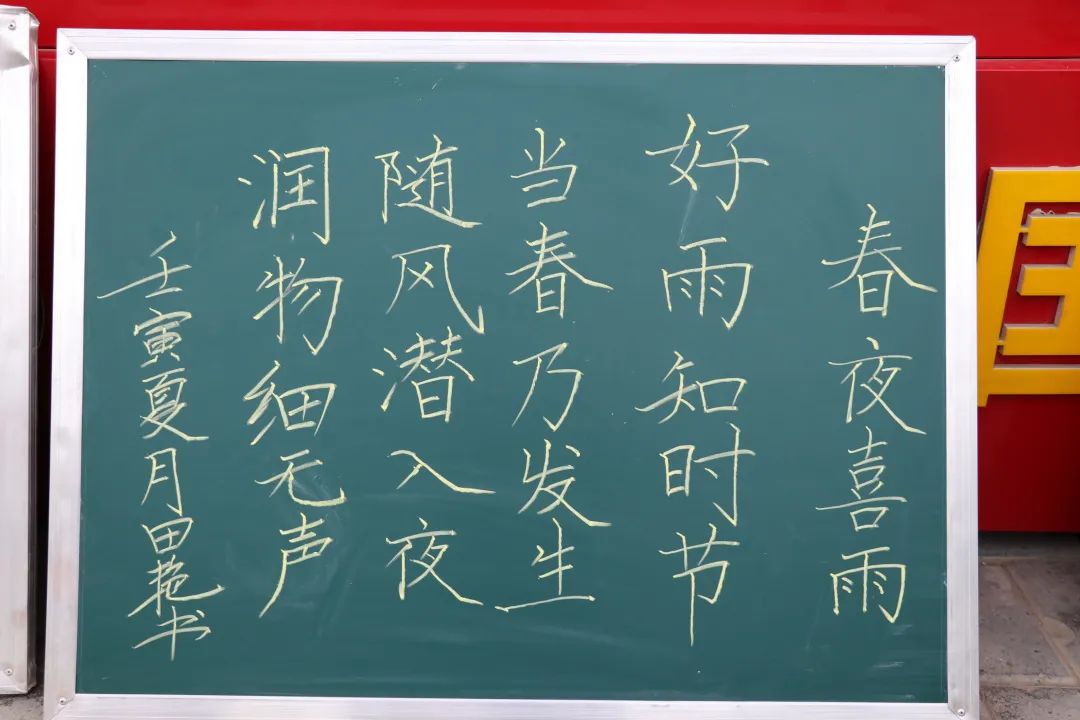 春夜喜雨
好雨知时节
当春乃发生
随风潜入夜
润物细无声
壬寅夏月田艳书